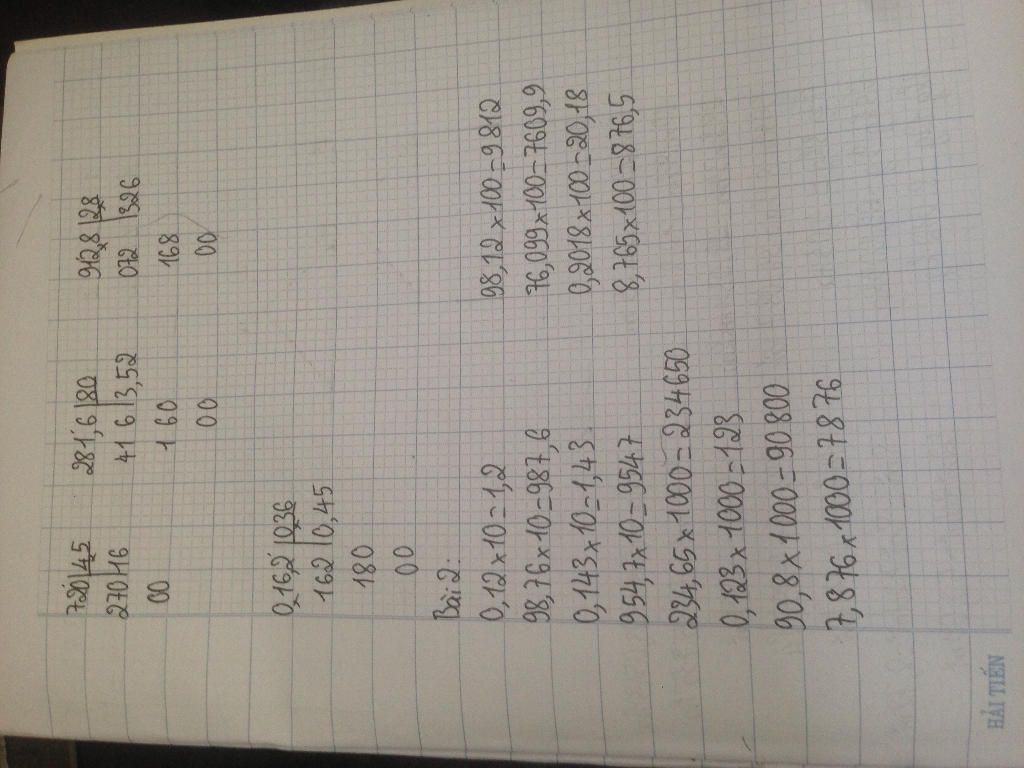 720 | 4,5   281,6 | 80   912,8 | 2,8
270 | 16   41 6 | 3,52   072 | 326
00   1 60   168
00   00
0,16,2 | 0,36
162 | 0,45
180
00
Bài 2:
0,12 x 10 = 1,2   98,12 x 100 = 9812
98,76 x 10 = 987,6   76,099 x 100 = 7609,9
0,143 x 10 = 1,43   0,2018 x 100 = 20,18
954,7 x 10 = 9547   8,765 x 100 = 876,5
234,65 x 1000 = 234650
0,123 x 1000 = 123
90,8 x 1000 = 90800
7,876 x 1000 = 7876
HẢI TIẾN